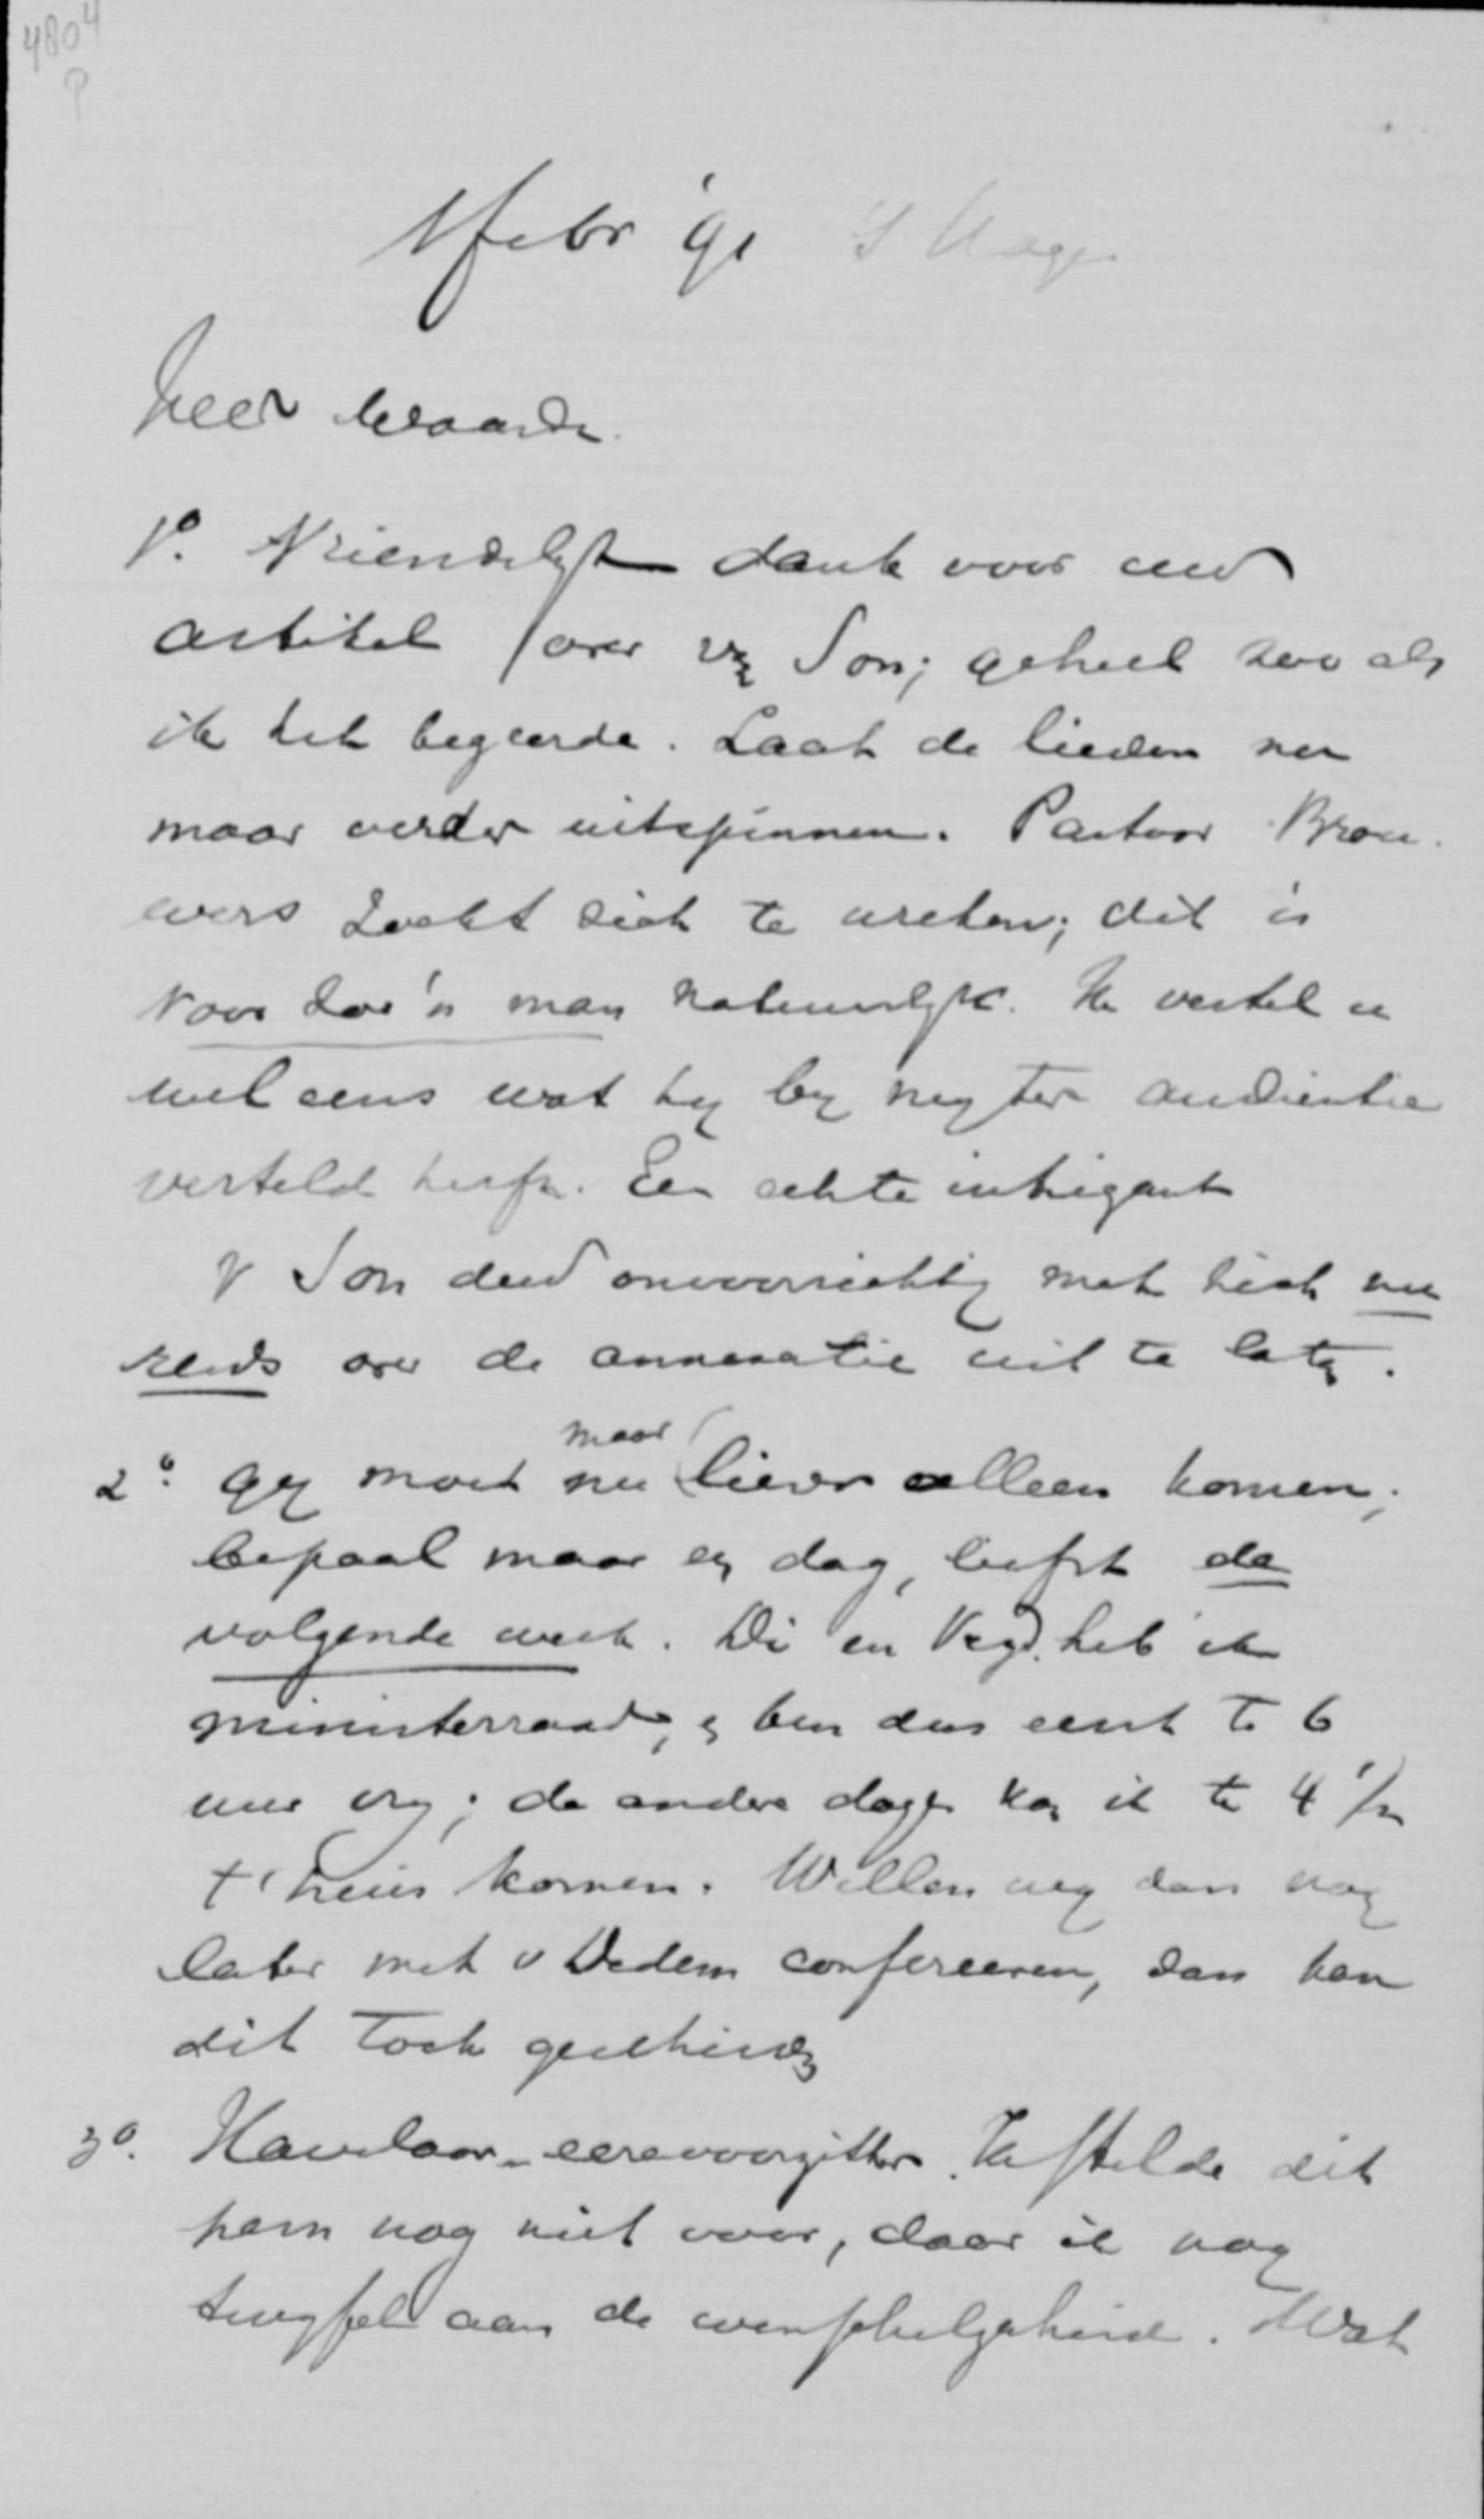 4804
1 febr '91 's Hage
Zeer Waarde.
1°. Vriendelijk dank voor uw
artikel over v Son; geheel zoo als
ik het begeerde. Laat de lieden nu
maar verder uitspinnen. Pastoor Brou-
wers zoekt zich te wreken; dit is
voor zoo'n man natuurlijk. Ik vertel u
wel eens wat hij bij mij ter audientie
verteld heeft. Een echte intrigant
v Son deed onvoorzichtig met zich nu
reeds over de annexatie uit te laten.
2°. Gij moet nu maar liever alleen komen;
bepaal maar een dag, liefst de
volgende week. Di en Vrijd. heb ik
ministerraad, en ben dus eerst te 6
uur vrij; de andere dagen kan ik te 4 1/2
t'huis komen. Willen wij dan nog
later met v Dedem confereeren, dan kan
dit toch geschieden
3°. Havelaar-eerevoorzitter. Ik stelde dit
hem nog niet voor, daar ik nog
twijfel aan de wenschelijkheid. Wat